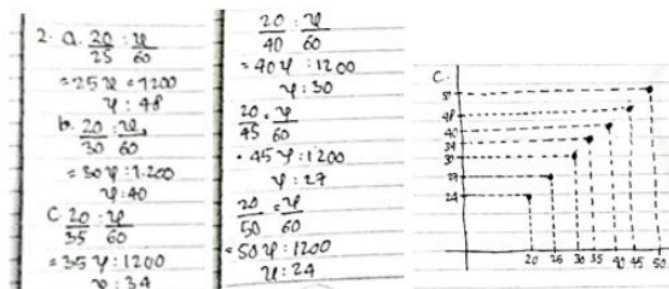 2. a. 20/25 : y/60
= 25 y = 1200
y : 48
b. 20/30 : y/60
= 30 y : 1.200
y : 40
C. 20/35 : y/60
= 35 y : 1200
y : 34
20/40 : y/60
= 40 y : 1200
y : 30
20/45 = y/60
= 45 y : 1200
y : 27
20/50 = y/60
= 50 y : 1200
y : 24
C.
48
40
34
30
27
24
20 25 30 35 40 45 50